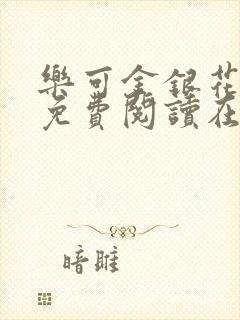 樂可金銀花
免費閱讀在
暗雎